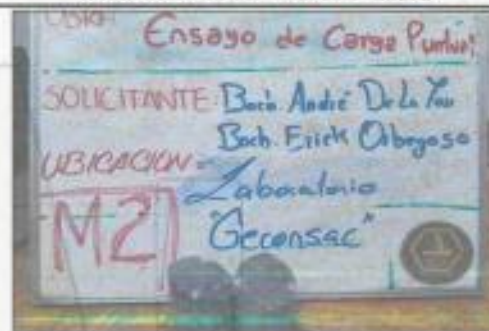 Ensayo de Carga Puntual
SOLICITANTE: Bach. André De La
Bach. Erick Orbegoso
UBICACION =
Laboratorio
"Geconsac"
M2